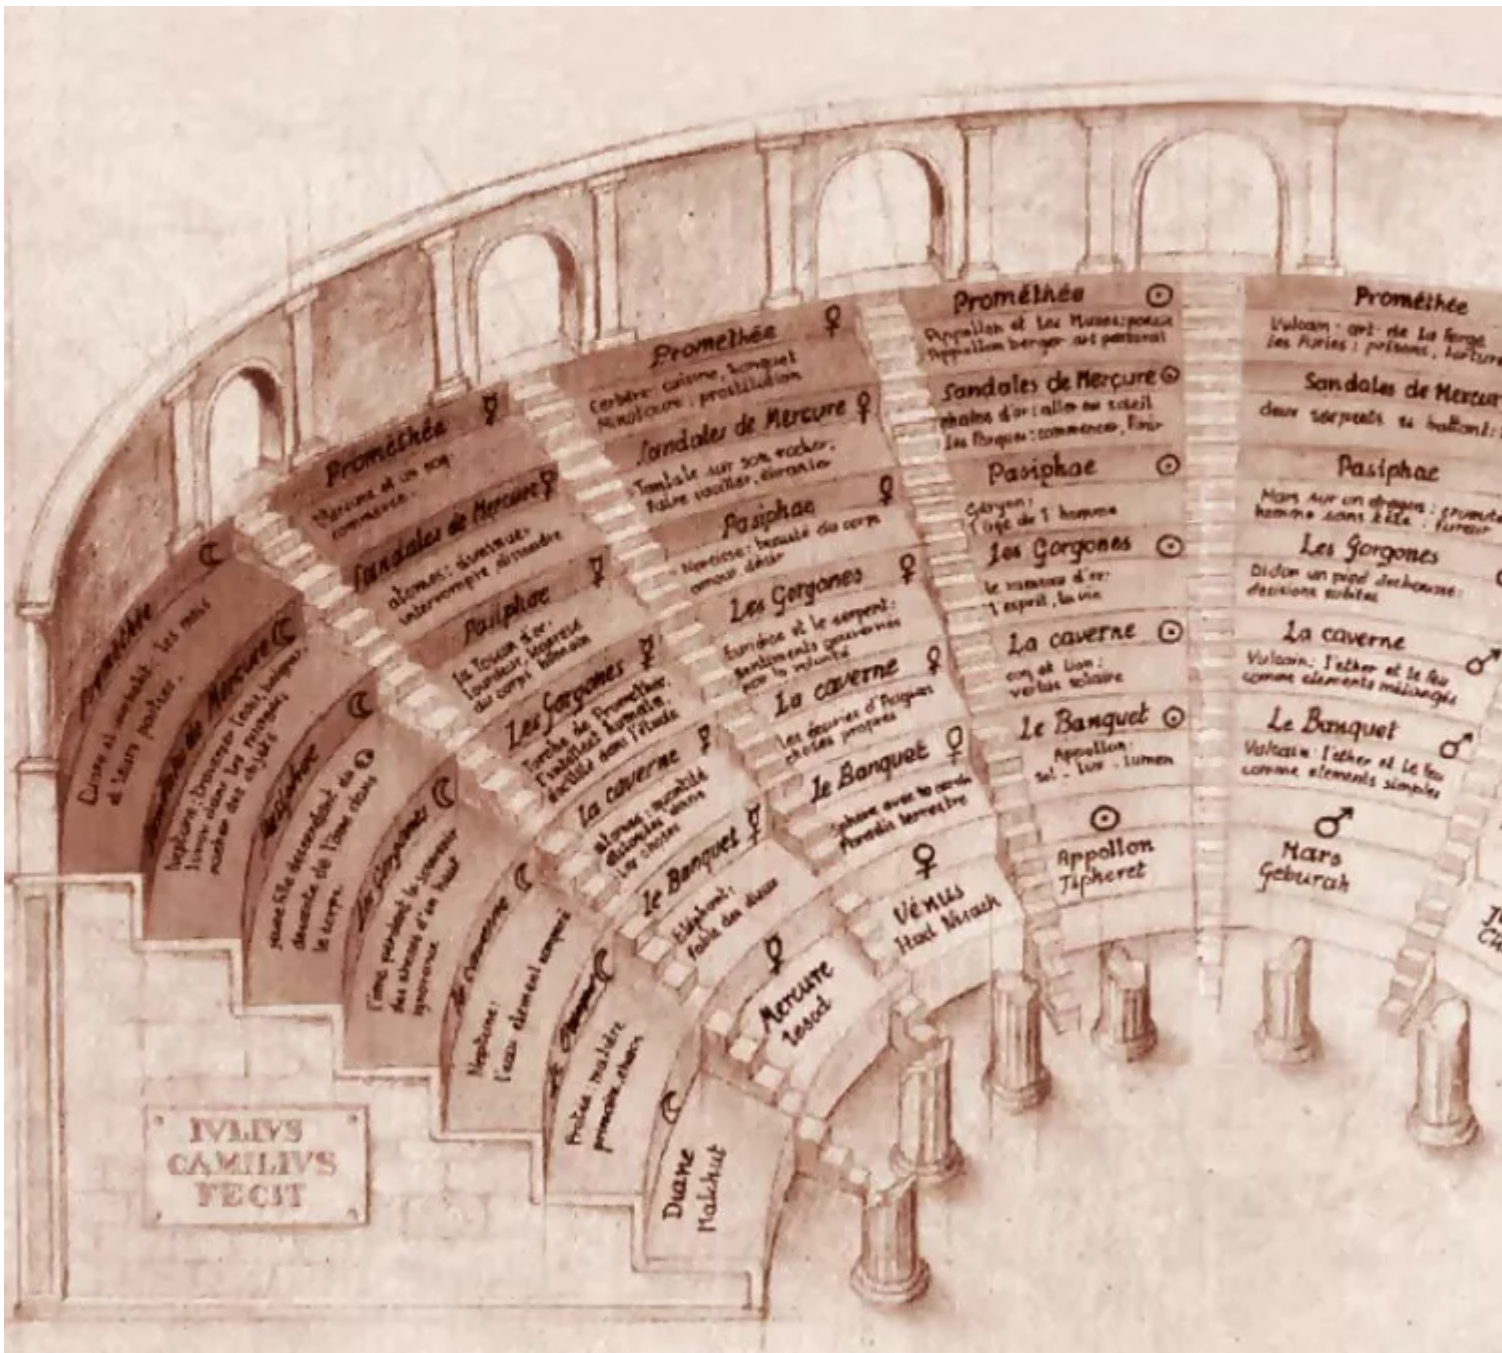 Prométhée
Diane et
les mois
et leurs parties.
Mercure
Neptune: traverser l'eau,
Pasiphae
jeune fille descendant du
descente de l'âme dans
le corps.
Les Gorgones
La caverne
Neptune:
l'eau élément composé
Le Banquet
Protée: matière
première, chaos
Diane
Malchut
Prométhée
commerce.
Sandales de Mercure
atomes: diminuer
interrompre dissoudre
Pasiphae
la Toison d'or:
lourdeur, légèreté
du corps humain
Les Gorgones
Torche de Prométhée:
l'intellect humain,
docilité dans l'étude
La caverne
les choses
Le Banquet
Eléphant:
fable des dieux
Mercure
Iesod
Prométhée
Cerbère: cuisine, banquet
Minotaure: prostitution
Sandales de Mercure
Tantale sur son rocher,
faire vaciller, ébranler
Pasiphae
Narcisse: beauté du corps
amour désir
Les Gorgones
Eurydice et le serpent:
sentiments gouvernés
par la volonté
La caverne
les écuries d'Augias
choses propres
Le Banquet
Sphère avec
Paradis terrestre
Vénus
Hod Nisach
Prométhée
Appollon et les Muses: poésie
Appollon berger art pastoral
Sandales de Mercure
chaîne d'or: aller au soleil
les Parques: commencer, finir
Pasiphae
Géryon:
l'âge de l'homme
Les Gorgones
le rameau d'or:
l'esprit, la vie
La caverne
coq et lion:
vertus solaire
Le Banquet
Appollon
sol - lux - lumen
Appollon
Tipheret
Prométhée
Vulcain: art de la forge
les Furies: prisons, torture
Sandales de Mercur
deux serpents se battant:
Pasiphae
Mars sur un dragon:
homme sans tête: fureur
Les Gorgones
Didon un pied déchaussé:
décisions subites
La caverne
Vulcain: l'ether et le feu
comme elements mélangés
Le Banquet
Vulcain: l'ether et le feu
comme elements simples
Mars
Geburah
IVLIVS
CAMILIVS
FECIT